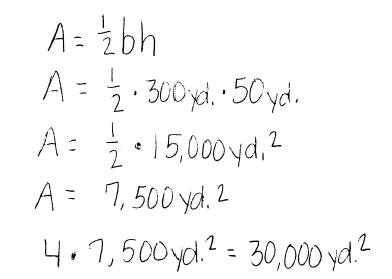 A = 1/2 bh
A = 1/2 · 300 yd. · 50 yd.
A = 1/2 · 15,000 yd.²
A = 7,500 yd.²
4 · 7,500 yd.² = 30,000 yd.²